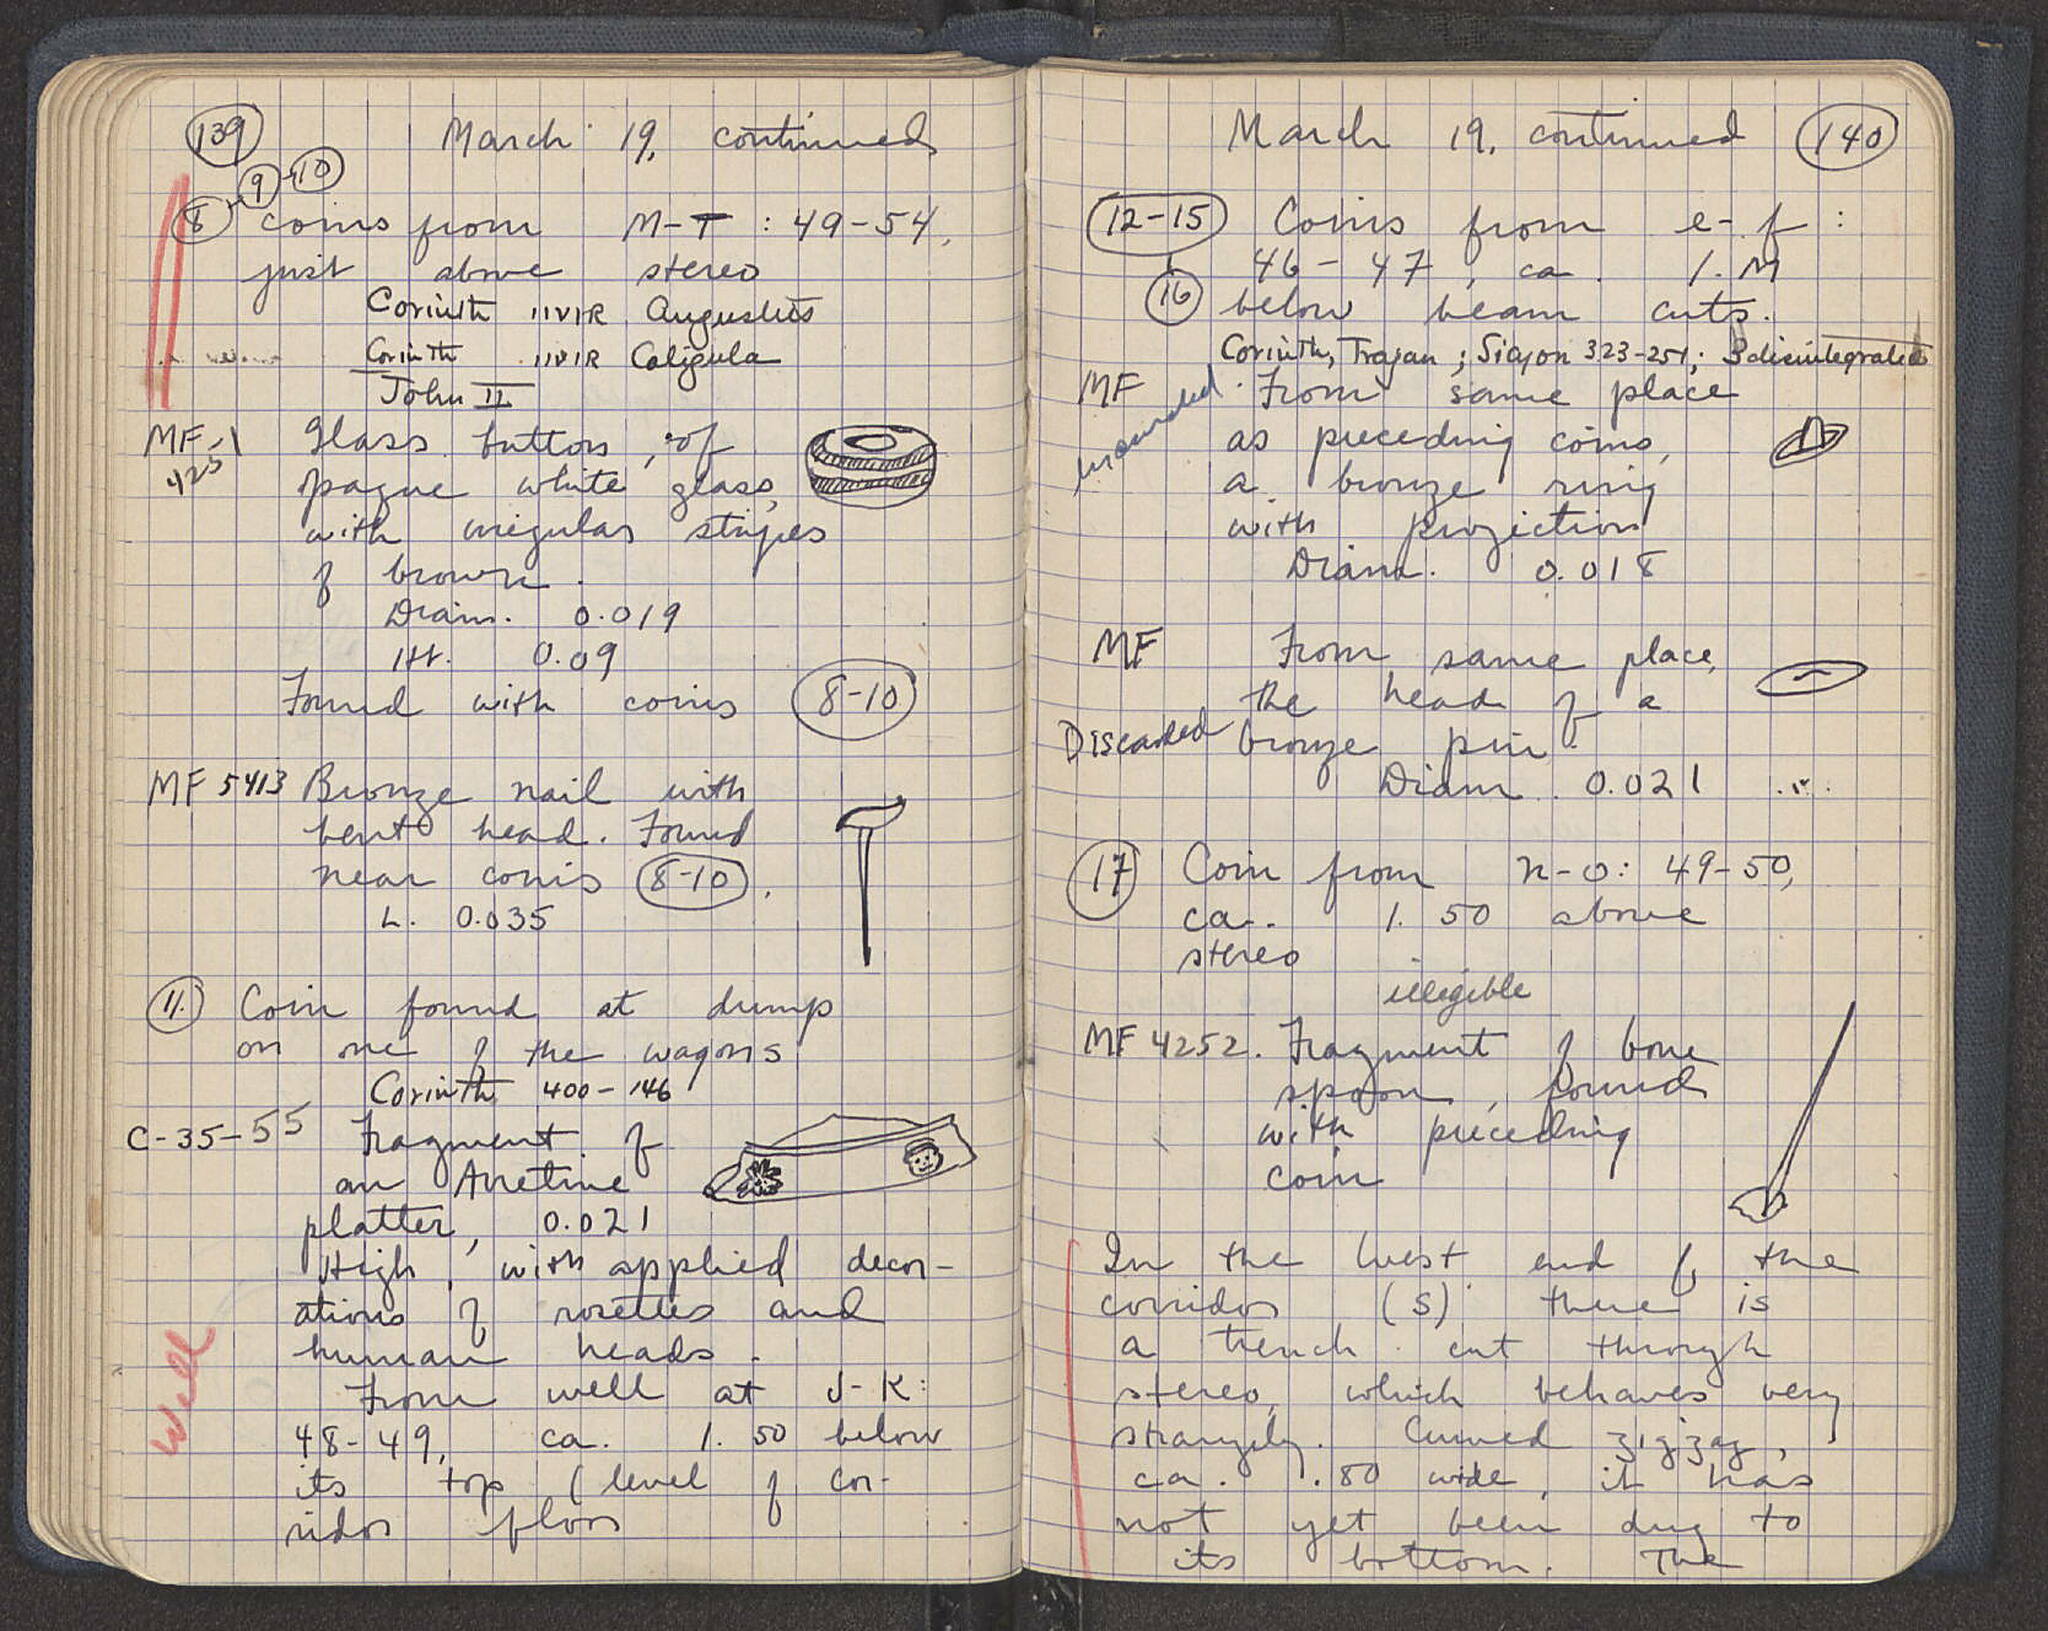 139
March 19, continued
8 - 9 - 10
coins from M-T : 49-54,
just above stereo
Corinth IIVIR Augustus
Corinth IIVIR Caligula
John II
MF-
4251
Glass button, of
opaque white glass,
with irregular stripes
of brown.
Diam. 0.019
Ht. 0.09
Found with coins 8-10
MF 5413 Bronze nail with
bent head. Found
near coins 8-10.
L. 0.035
11. Coin found at dump
on one of the wagons
Corinth 400-146
C-35-55 Fragment of
an Arretine
platter, 0.021
High, with applied decor-
ations of rosettes and
human heads.
Well
From well at J-K:
48-49, ca. 1.50 below
its top (level of cor-
ridor floor
March 19, continued 140
12-15 Coins from e-f :
46-47, ca. 1. M
16 below beam cuts.
Corinth, Trajan ; Sicyon 323-251; 3 disintegrated
MF From same place
as preceding coins,
a bronze ring
with projection
Diam. 0.018
MF From same place,
the head of a
Discarded bronze pin.
Diam. 0.021
17 Coin from n-o: 49-50,
ca. 1.50 above
stereo
illegible
MF 4252. Fragment of bone
spoon, found
with preceding
coin
In the West end of the
corridor (S) there is
a trench cut through
stereo, which behaves very
strangely. Curved zigzag,
ca. .80 wide, it has
not yet been dug to
its bottom. The